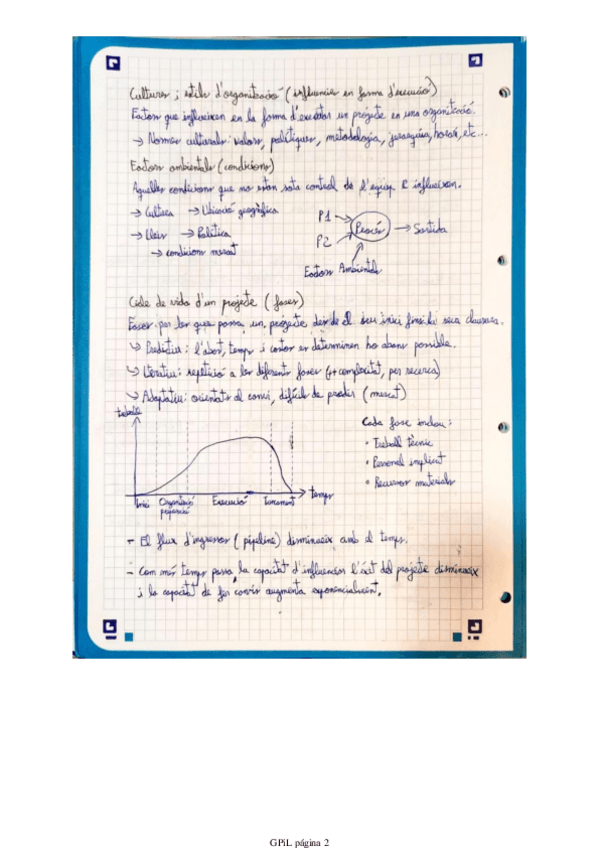 Cultures i estils d'organització (influencien en forma d'execució)
Factors que influeixen en la forma d'executar un projecte en una organització.
→ Normes culturals: valors, polítiques, metodologia, jerarquia, horari, etc...
Factors ambientals (condicions)
Aquelles condicions que no estan sota control de l'equip i influeixen.
→ Cultura → Ubicació geogràfica
→ Lleis → Política
→ condicions mercat
P1
P2
Procés → Sortida
Factors Ambientals
Cicle de vida d'un projecte (fases)
Fases per les que passa un projecte des de el seu inici fins la seva clausura.
↳ Predictiu: l'abast, temps i costos es determinen lo abans possible.
↳ Iteratiu: repetició a les diferents fases (++complexitat, per recerca)
↳ Adaptatiu: orientats al canvi, difícils de predir (mercat)
treball
Cada fase inclou:
• Treball tècnic
• Personal implicat
• Recursos materials
temps
Inici Organització preparació Execució Tancament
- El flux d'ingressos (pipeline) disminueix amb el temps.
- Com més temps passa, la capacitat d'influències l'èxit del projecte disminueix
i la capacitat de fer canvis augmenta exponencialment.
GPiL página 2